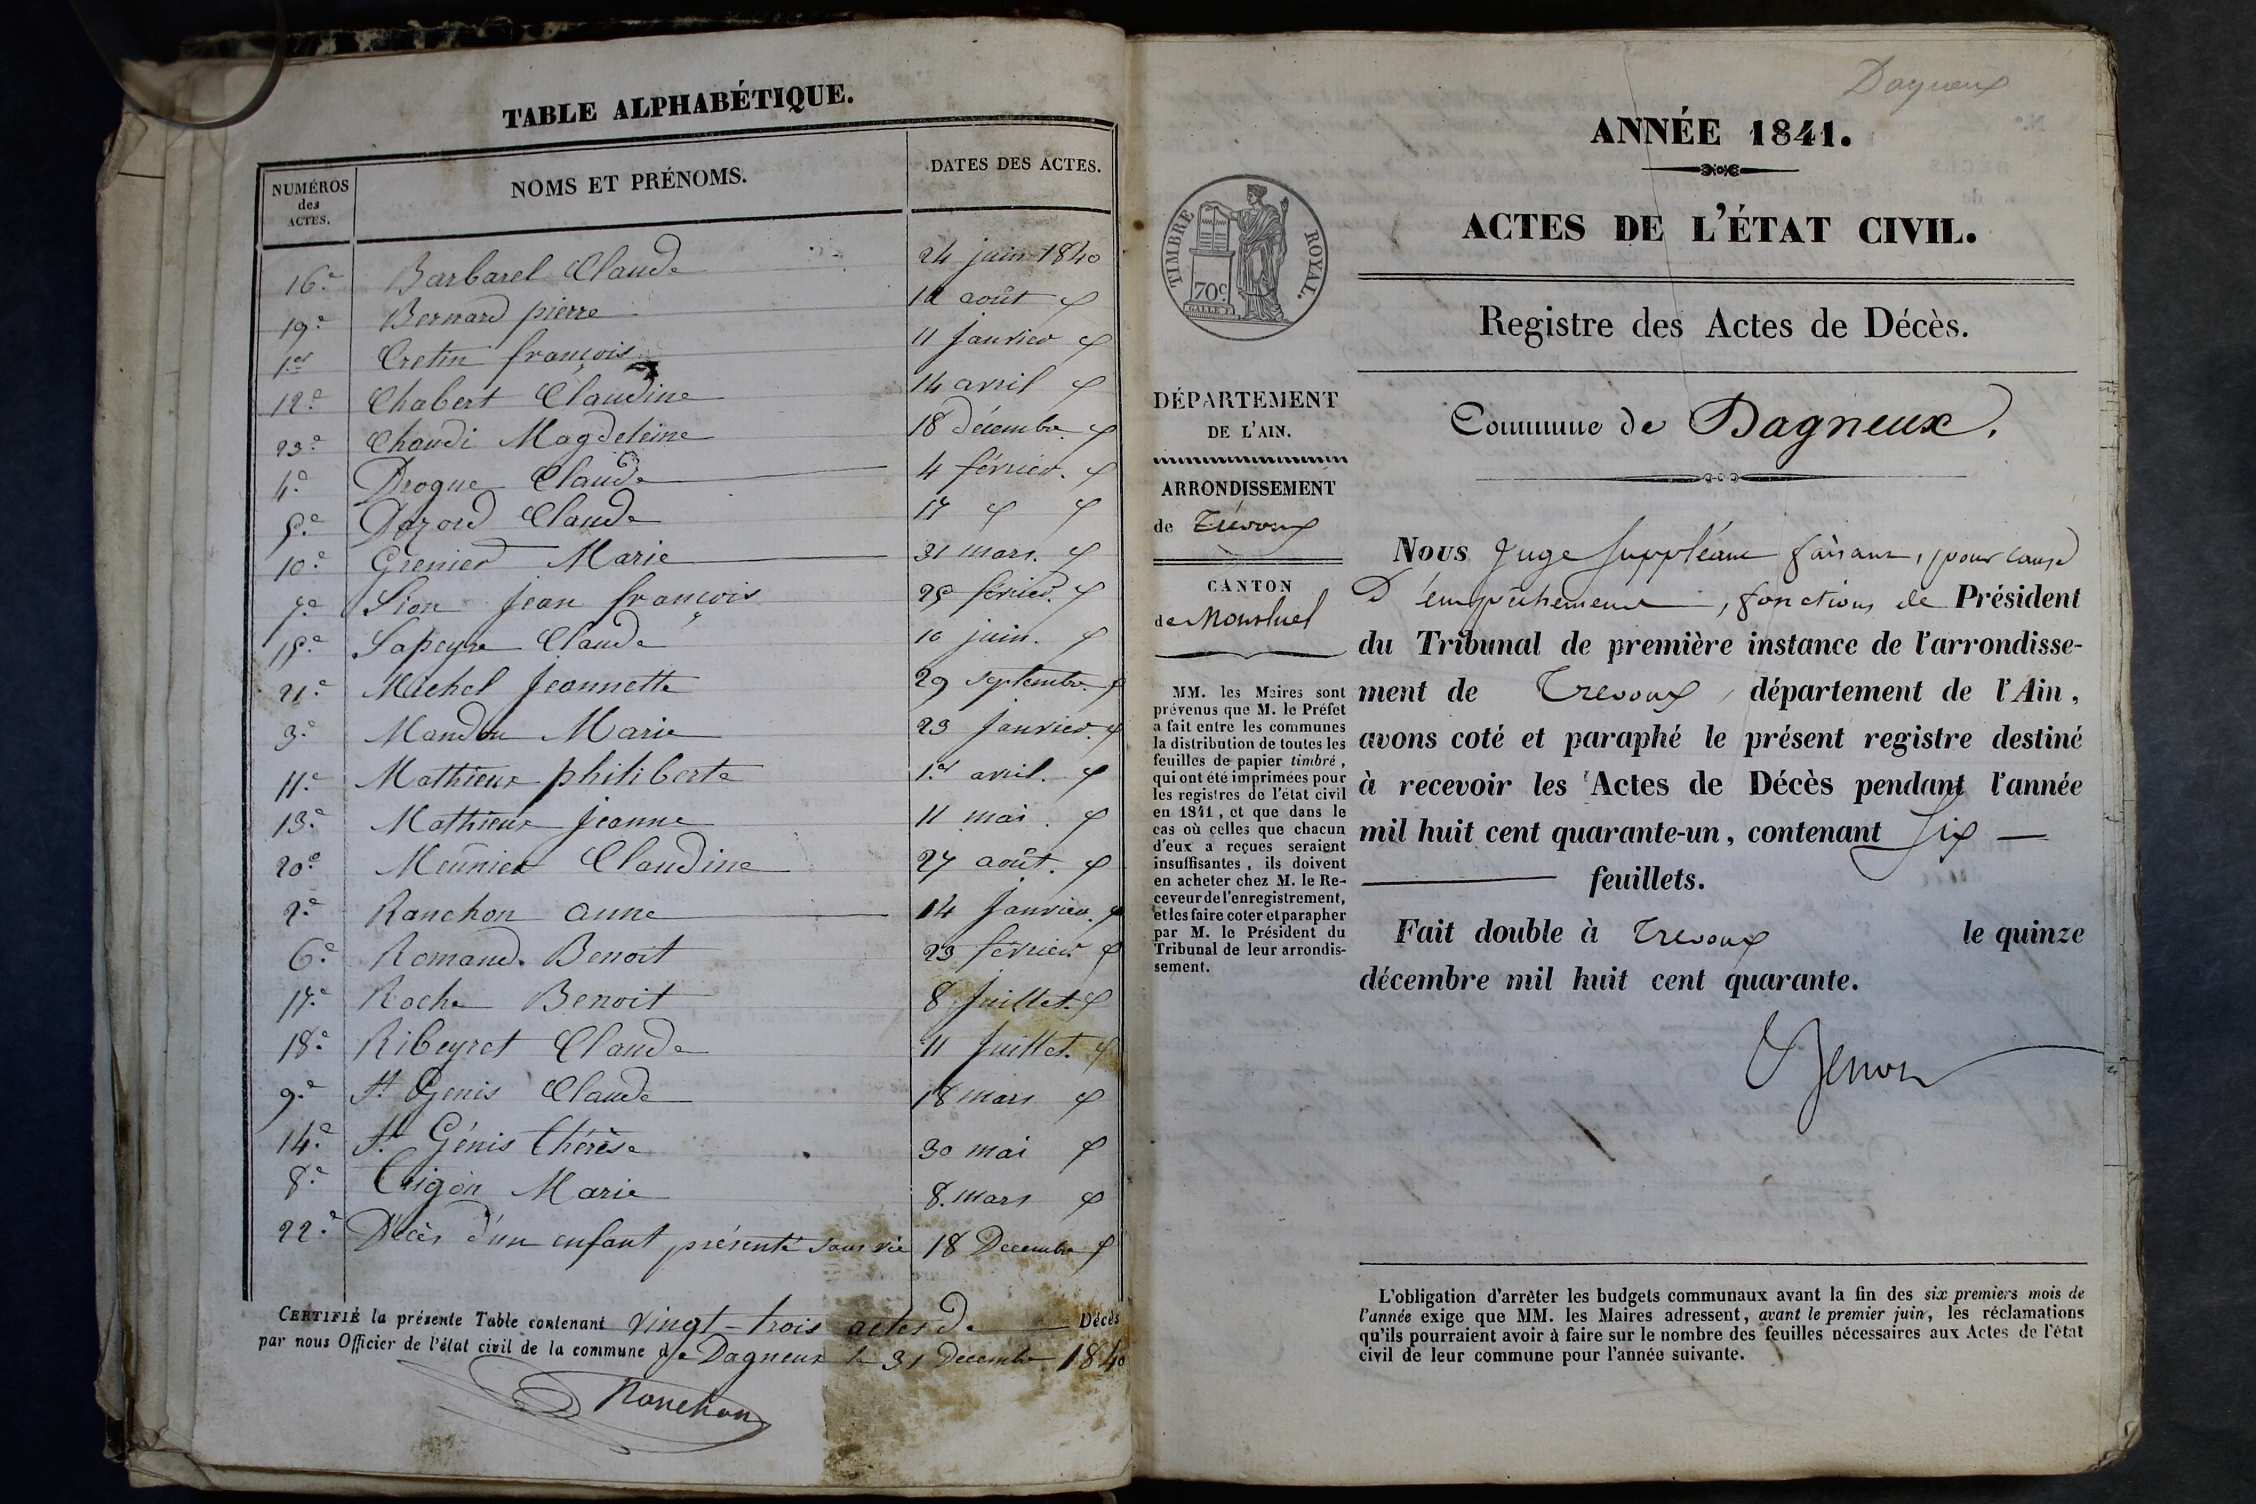 TABLE ALPHABÉTIQUE.
NUMÉROS des ACTES.
NOMS ET PRÉNOMS.
DATES DES ACTES.
16e Barbarel Claude 24 juin 1840
19e Bernard pierre 12 août
1er Cretin françois 11 Janvier
12e Chabert Claudine 14 avril
23e Chaudi Magdeleine 18 décembre
4e Drogue Claude 4 février
5e Dazord Claude 17
10e Grenier Marie 31 mars
7e Lion Jean françois 25 février
15e Lapeyre Claude 10 juin
21e Michel Jeannette 29 septembre
3e Mandon Marie 23 Janvier
11e Mathieux philiberte 1er avril
13e Mathieux Jeanne 11 mai
20e Meûnier Claudine 27 août
2e Ranchon anne 14 Janvier
6e Romand Benoit 23 février
17e Roche Benoit 8 Juillet
18e Ribeyret Claude 11 Juillet
9e St Genis Claude 18 mars
14e St Génis thérèse 30 mai
8e Trigon Marie 8 mars
22e Décès d'un enfant présenté sans vie 18 Decembre
CERTIFIÉ la présente Table contenant vingt-trois actes de Décès
par nous Officier de l'état civil de la commune de Dagneux le 31 Decembre 1840
Ranchon
Dagneux
ANNÉE 1841.
ACTES DE L'ÉTAT CIVIL.
TIMBRE ROYAL.
70c
Registre des Actes de Décès.
DÉPARTEMENT
DE L'AIN.
ARRONDISSEMENT
de Trévoux
CANTON
de Montluel
MM. les Maires sont
prévenus que M. le Préfet
a fait entre les communes
la distribution de toutes les
feuilles de papier timbré,
qui ont été imprimées pour
les registres de l'état civil
en 1841, et que dans le
cas où celles que chacun
d'eux a reçues seraient
insuffisantes, ils doivent
en acheter chez M. le Re-
ceveur de l'enregistrement,
et les faire coter et parapher
par M. le Président du
Tribunal de leur arrondis-
sement.
Commune de Dagneux.
Nous Juge suppléant faisant, pour cause
d'empêchement, fonctions de Président
du Tribunal de première instance de l'arrondisse-
ment de Trevoux, département de l'Ain,
avons coté et paraphé le présent registre destiné
à recevoir les Actes de Décès pendant l'année
mil huit cent quarante-un, contenant Six —
feuillets.
Fait double à Trevoux le quinze
décembre mil huit cent quarante.
L'obligation d'arrêter les budgets communaux avant la fin des six premiers mois de
l'année exige que MM. les Maires adressent, avant le premier juin, les réclamations
qu'ils pourraient avoir à faire sur le nombre des feuilles nécessaires aux Actes de l'état
civil de leur commune pour l'année suivante.